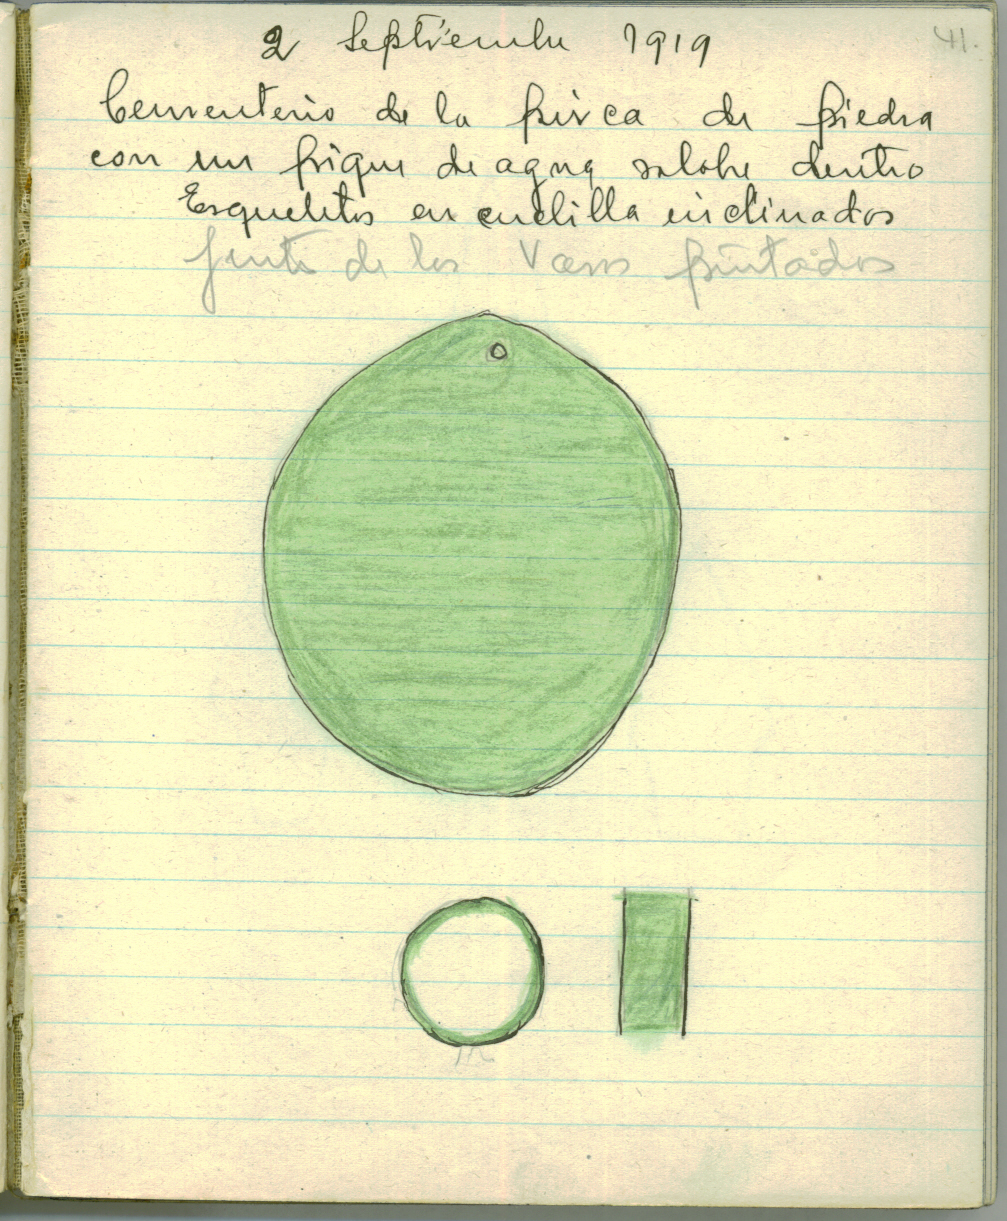 41.
2 Septiembre 1919
Cementerio de la pirca de piedra
con un pique de agua salobre dentro
Esqueletos en cuclilla inclinados
Gente de los Vasos pintados